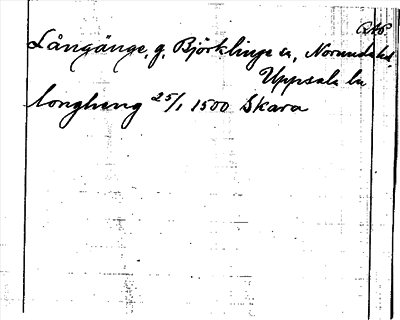 Långänge, g. Björklinge sn, Norunda hd
Uppsala län
longheng 25/1 1500 Skara